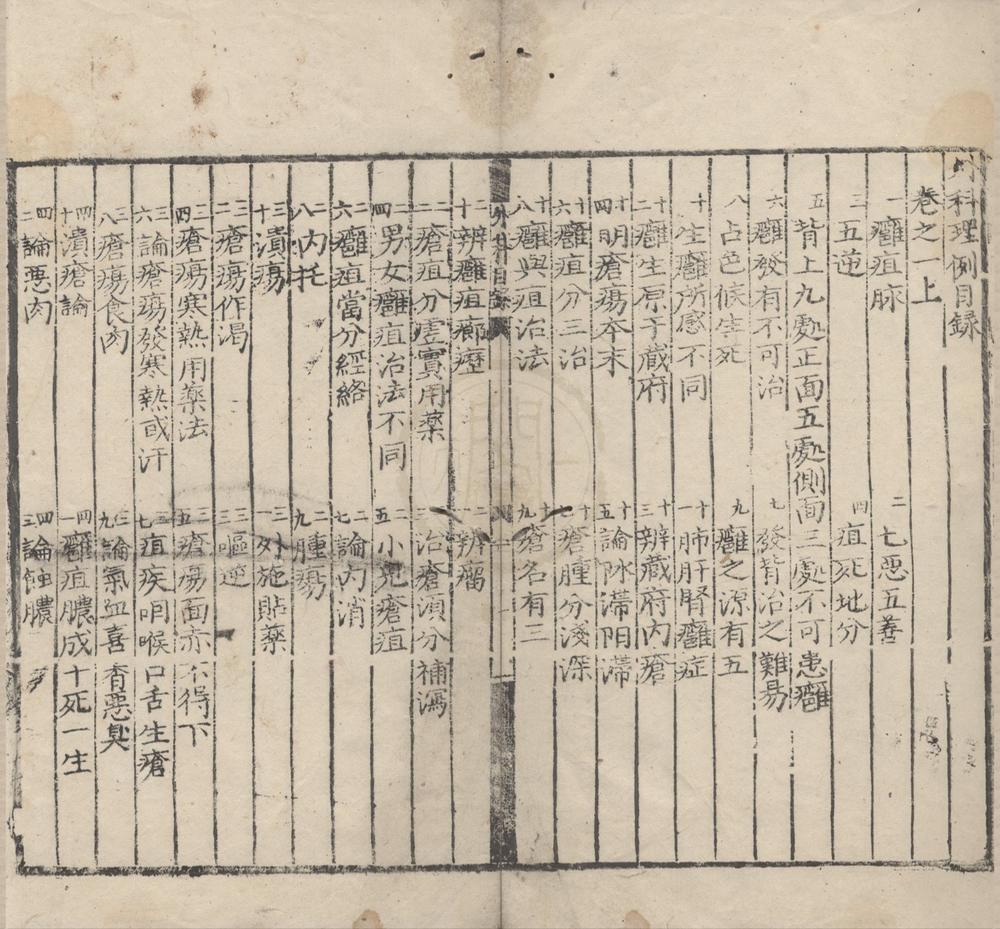 外科理例目録
卷之一上
一癰疽脉 二七惡五善
三五逆 四疽死地分
五背上九處正面五處側面三處不可患癰
六癰發有不可治 七發背治之難易
八占色候生死 九癰之源有五
十生癰所感不同 十一肺肝腎癰症
十二癰生原于蔵府 十三辨蔵府内瘡
十四明瘡瘍本末 十五論陰滞阳滞
十六癰疽分三治 十七瘡腫分淺深
十八癰與疽治法 十九瘡名有三
外科目録
一
二十辨癰疽瘰癧 二一辨瘤
二二瘡疽分虚實用藥 二三治瘡須分補瀉
二四男女癰疽治法不同 二五小児瘡疽
二六癰疽當分經絡 二七論内消
二八内托 二九腫瘍
三十潰瘍 三一外施貼藥
三二瘡瘍作渴 三三嘔逆
三四瘡瘍寒熱用藥法 三五瘡瘍面赤不得下
三六論瘡瘍發寒熱或汗 三七疽疾咽喉口舌生瘡
三八瘡瘍食肉 三九論氣血喜香惡臭
四十潰瘡論 四一癰疽膿成十死一生
四二論惡肉 四三論蝕膿